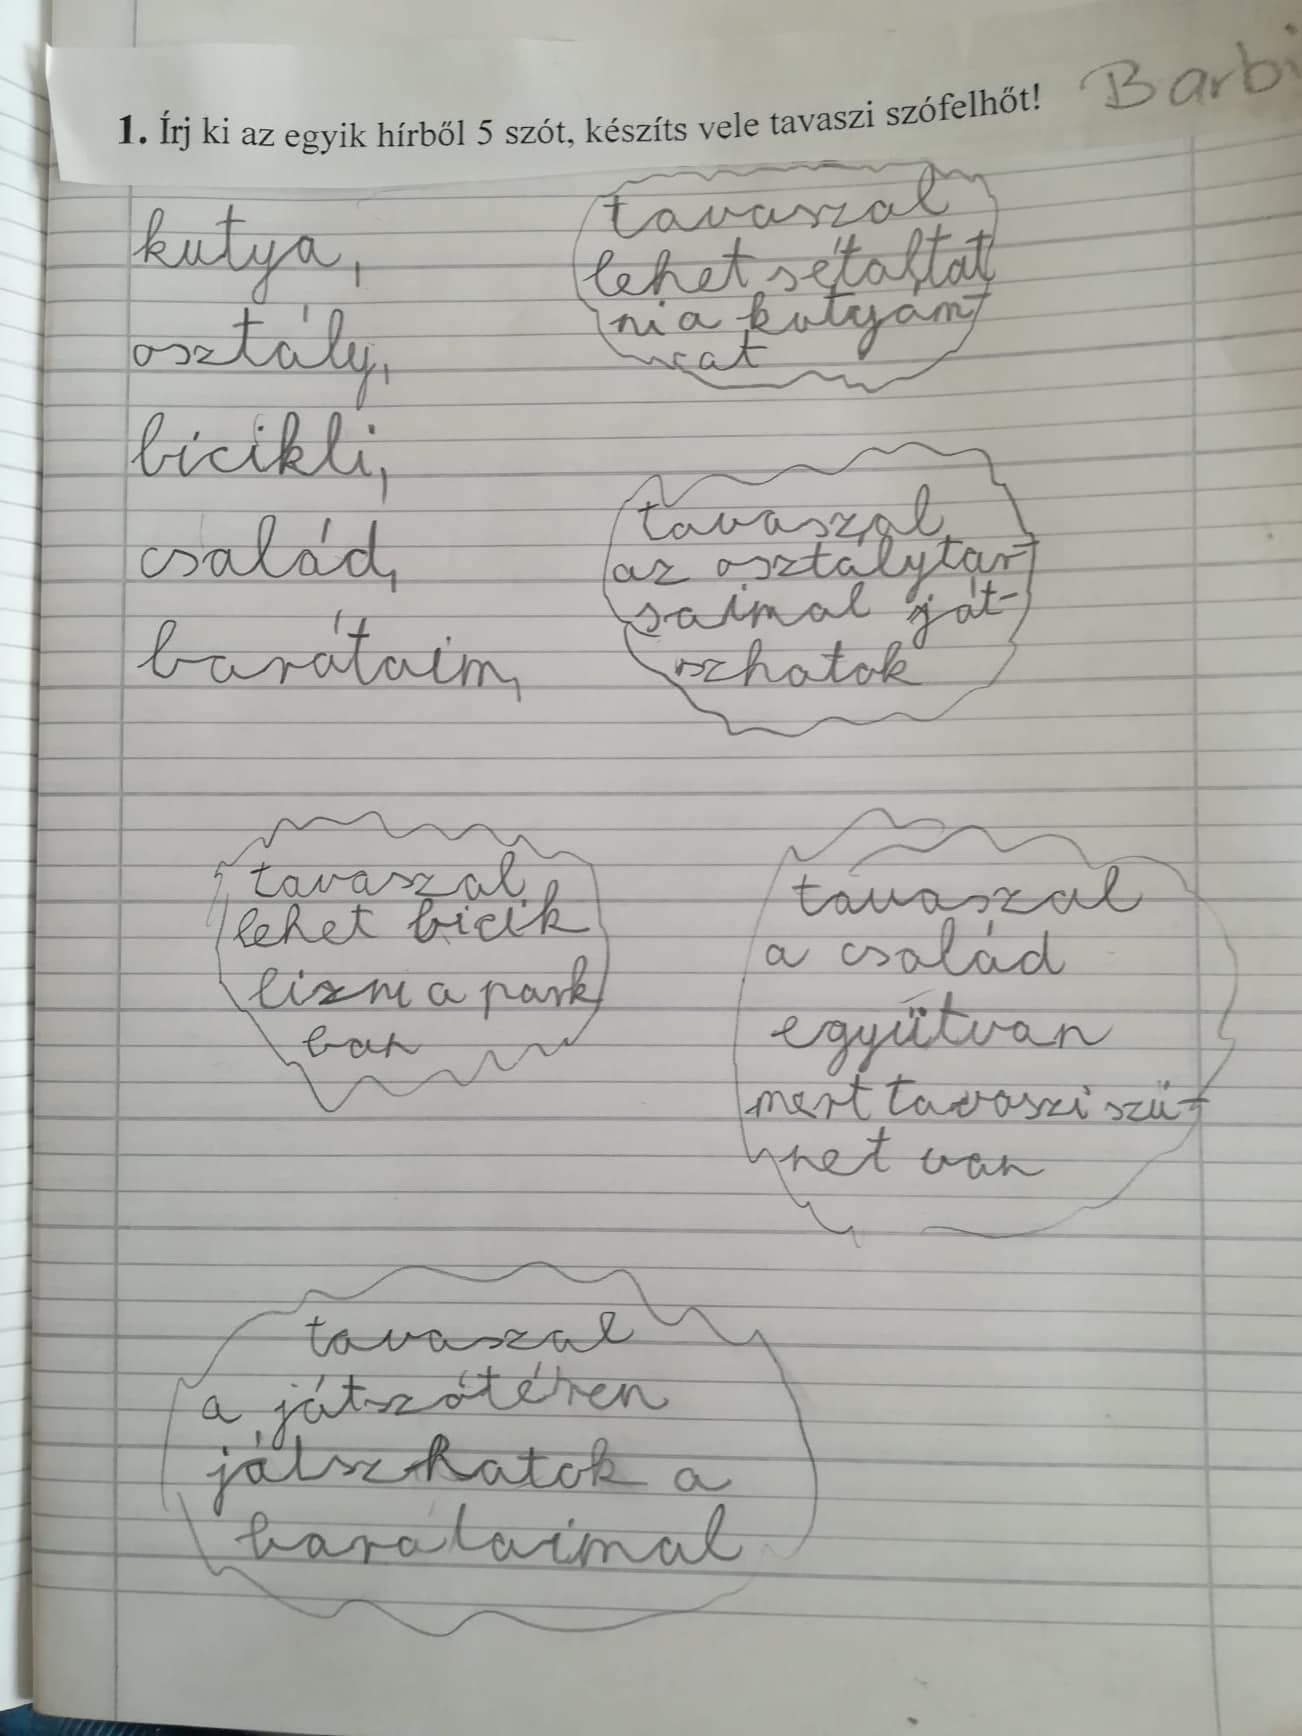 1. Írj ki az egyik hírből 5 szót, készíts vele tavaszi szófelhőt!
Barbi
kutya,
osztály,
bicikli,
család,
barátaim,
tavaszal
lehet sétáltat
ni a kutyám-
cat
tavaszal
az osztálytár-
saimal ját-
szhatok
tavaszal
lehet bicik
lizni a park
ban
tavaszal
a család
együtvan
mert tavaszi szü-
net van
tavaszal
a játszótéren
játszhatok a
barátaimal